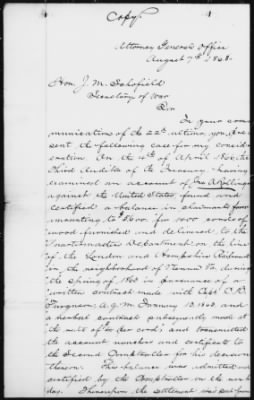 Copy
Attorney General's Office
August 7th 1868.
Hon. J. M. Schofield
Secretary of War
Sir
In your com-
munications of the 22d ultimo, you pre-
sent the following case for my consid-
eration. On the 4th of April 1866 the
Third Auditor of the Treasury having
examined an account of A Rollings
against the United States found and
certified a balance in claimant's favor
amounting to $ for cords of
wood furnished and delivered to the
Quartermaster Department on the line
of the London and Hampshire Railroad
in the neighborhood of Vienna Va. during
the Spring of 1865 in pursuance of a
written contract made with Capt. C. B.
Ferguson A.Q.M. January 13. and
a verbal contract subsequently made at
the rate of per cord; and transmitted
the account voucher and certificate to
the Second Comptroller for his decision
thereon. This balance was admitted and
certified by the Comptroller on the next
day. Thereupon the settlement was